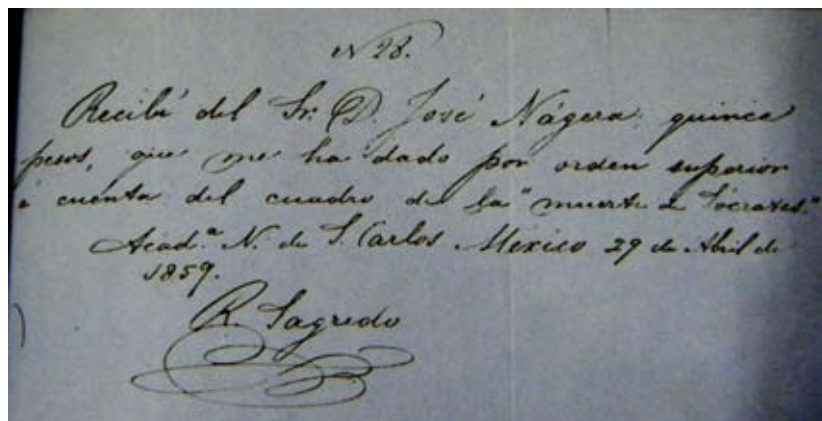 N 28.
Recibí del Sr. D. José Nágera quince
pesos, que me ha dado por orden superior
á cuenta del cuadro de la "muerte de Sócrates."
Acad.ª N. de S. Carlos México 29 de Abril de
1859.
R. Sagredo